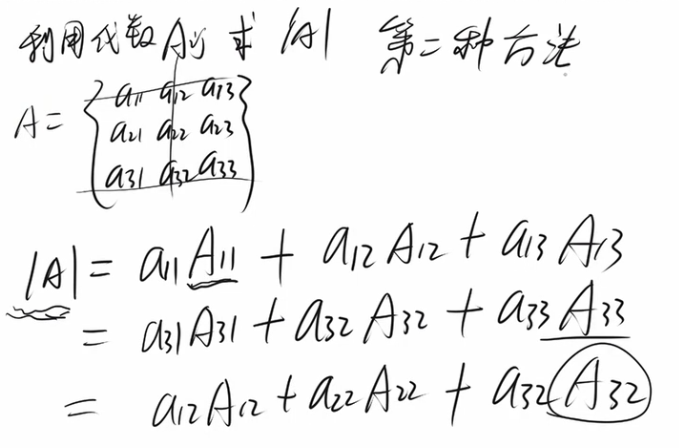 利用代数Aij求|A| 第二种方法
a11 a12 a13
A= a21 a22 a23
a31 a32 a33
|A| = a11A11 + a12A12 + a13A13
= a31A31 + a32A32 + a33A33
= a12A12 + a22A22 + a32A32